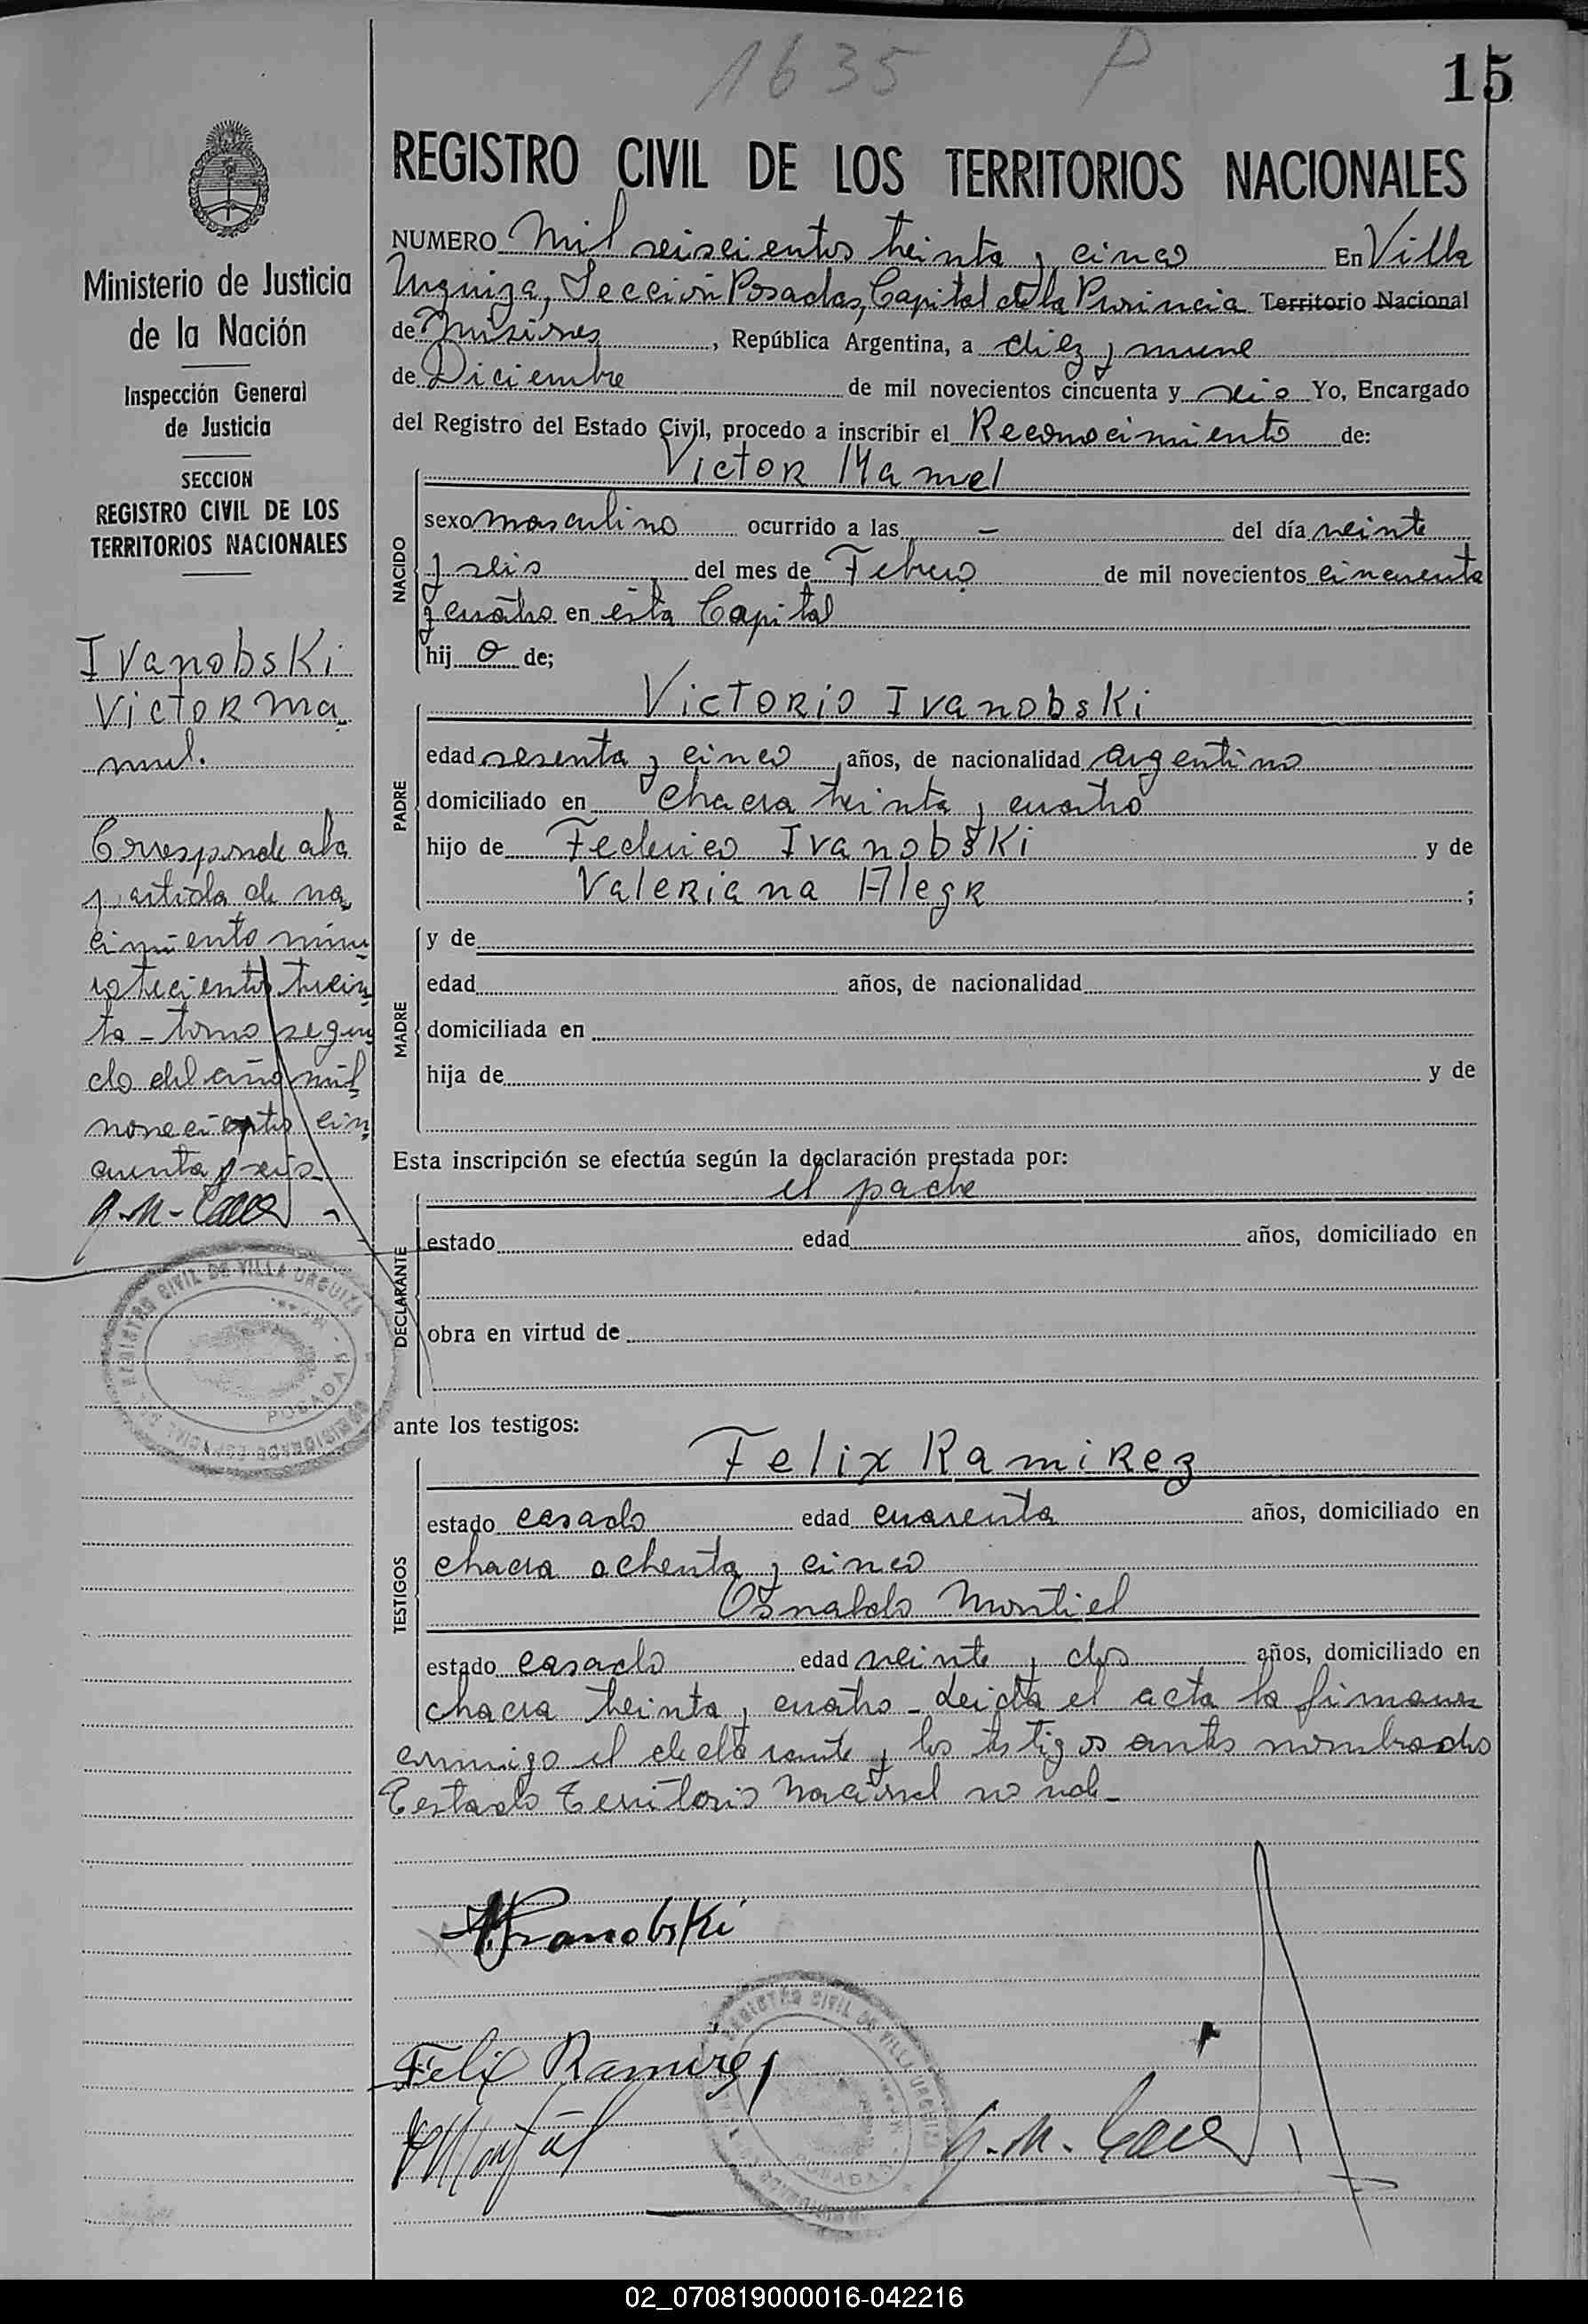 1635 P
15
REGISTRO CIVIL DE LOS TERRITORIOS NACIONALES
NUMERO Mil seiscientos treinta y cinco En Villa
Urquiza, Sección Posadas, Capital de la Provincia Territorio Nacional
de Misiones, República Argentina, a diez y nueve
de Diciembre de mil novecientos cincuenta y seis Yo, Encargado
del Registro del Estado Civil, procedo a inscribir el Reconocimiento de:
NACIDO
Victor Manuel
sexo masculino ocurrido a las - del día veinte
y seis del mes de Febrero de mil novecientos cincuenta
y cuatro en esta Capital
hij o de;
PADRE
Victorio Ivanobski
edad sesenta y cinco años, de nacionalidad argentino
domiciliado en chacra treinta y cuatro
hijo de Federico Ivanobski y de
Valeriana Alegr ;
MADRE
y de
edad años, de nacionalidad
domiciliada en
hija de y de
Esta inscripción se efectúa según la declaración prestada por:
DECLARANTE
el padre
estado edad años, domiciliado en
obra en virtud de
ante los testigos:
TESTIGOS
Felix Ramirez
estado casado edad cuarenta años, domiciliado en
chacra ochenta y cinco
Osvaldo Montiel
estado casado edad veinte y dos años, domiciliado en
chacra treinta y cuatro - Leida el acta la firman
conmigo el declarante y los testigos antes nombrados
Testado Territorio Nacional no vale -
Ivanobski
Felix Ramirez
Ministerio de Justicia
de la Nación
Inspección General
de Justicia
SECCION
REGISTRO CIVIL DE LOS
TERRITORIOS NACIONALES
Ivanobski
Victor Ma
nuel.
Corresponde a la
partida de na
cimiento núme
ro trecientos trein
ta - tomo segun
do del año mil
novecientos cin
cuenta y seis
REGISTRO CIVIL DE VILLA URQUIZA
POSADAS
REGISTRO CIVIL DE VILLA URQUIZA
POSADAS
02_070819000016-042216